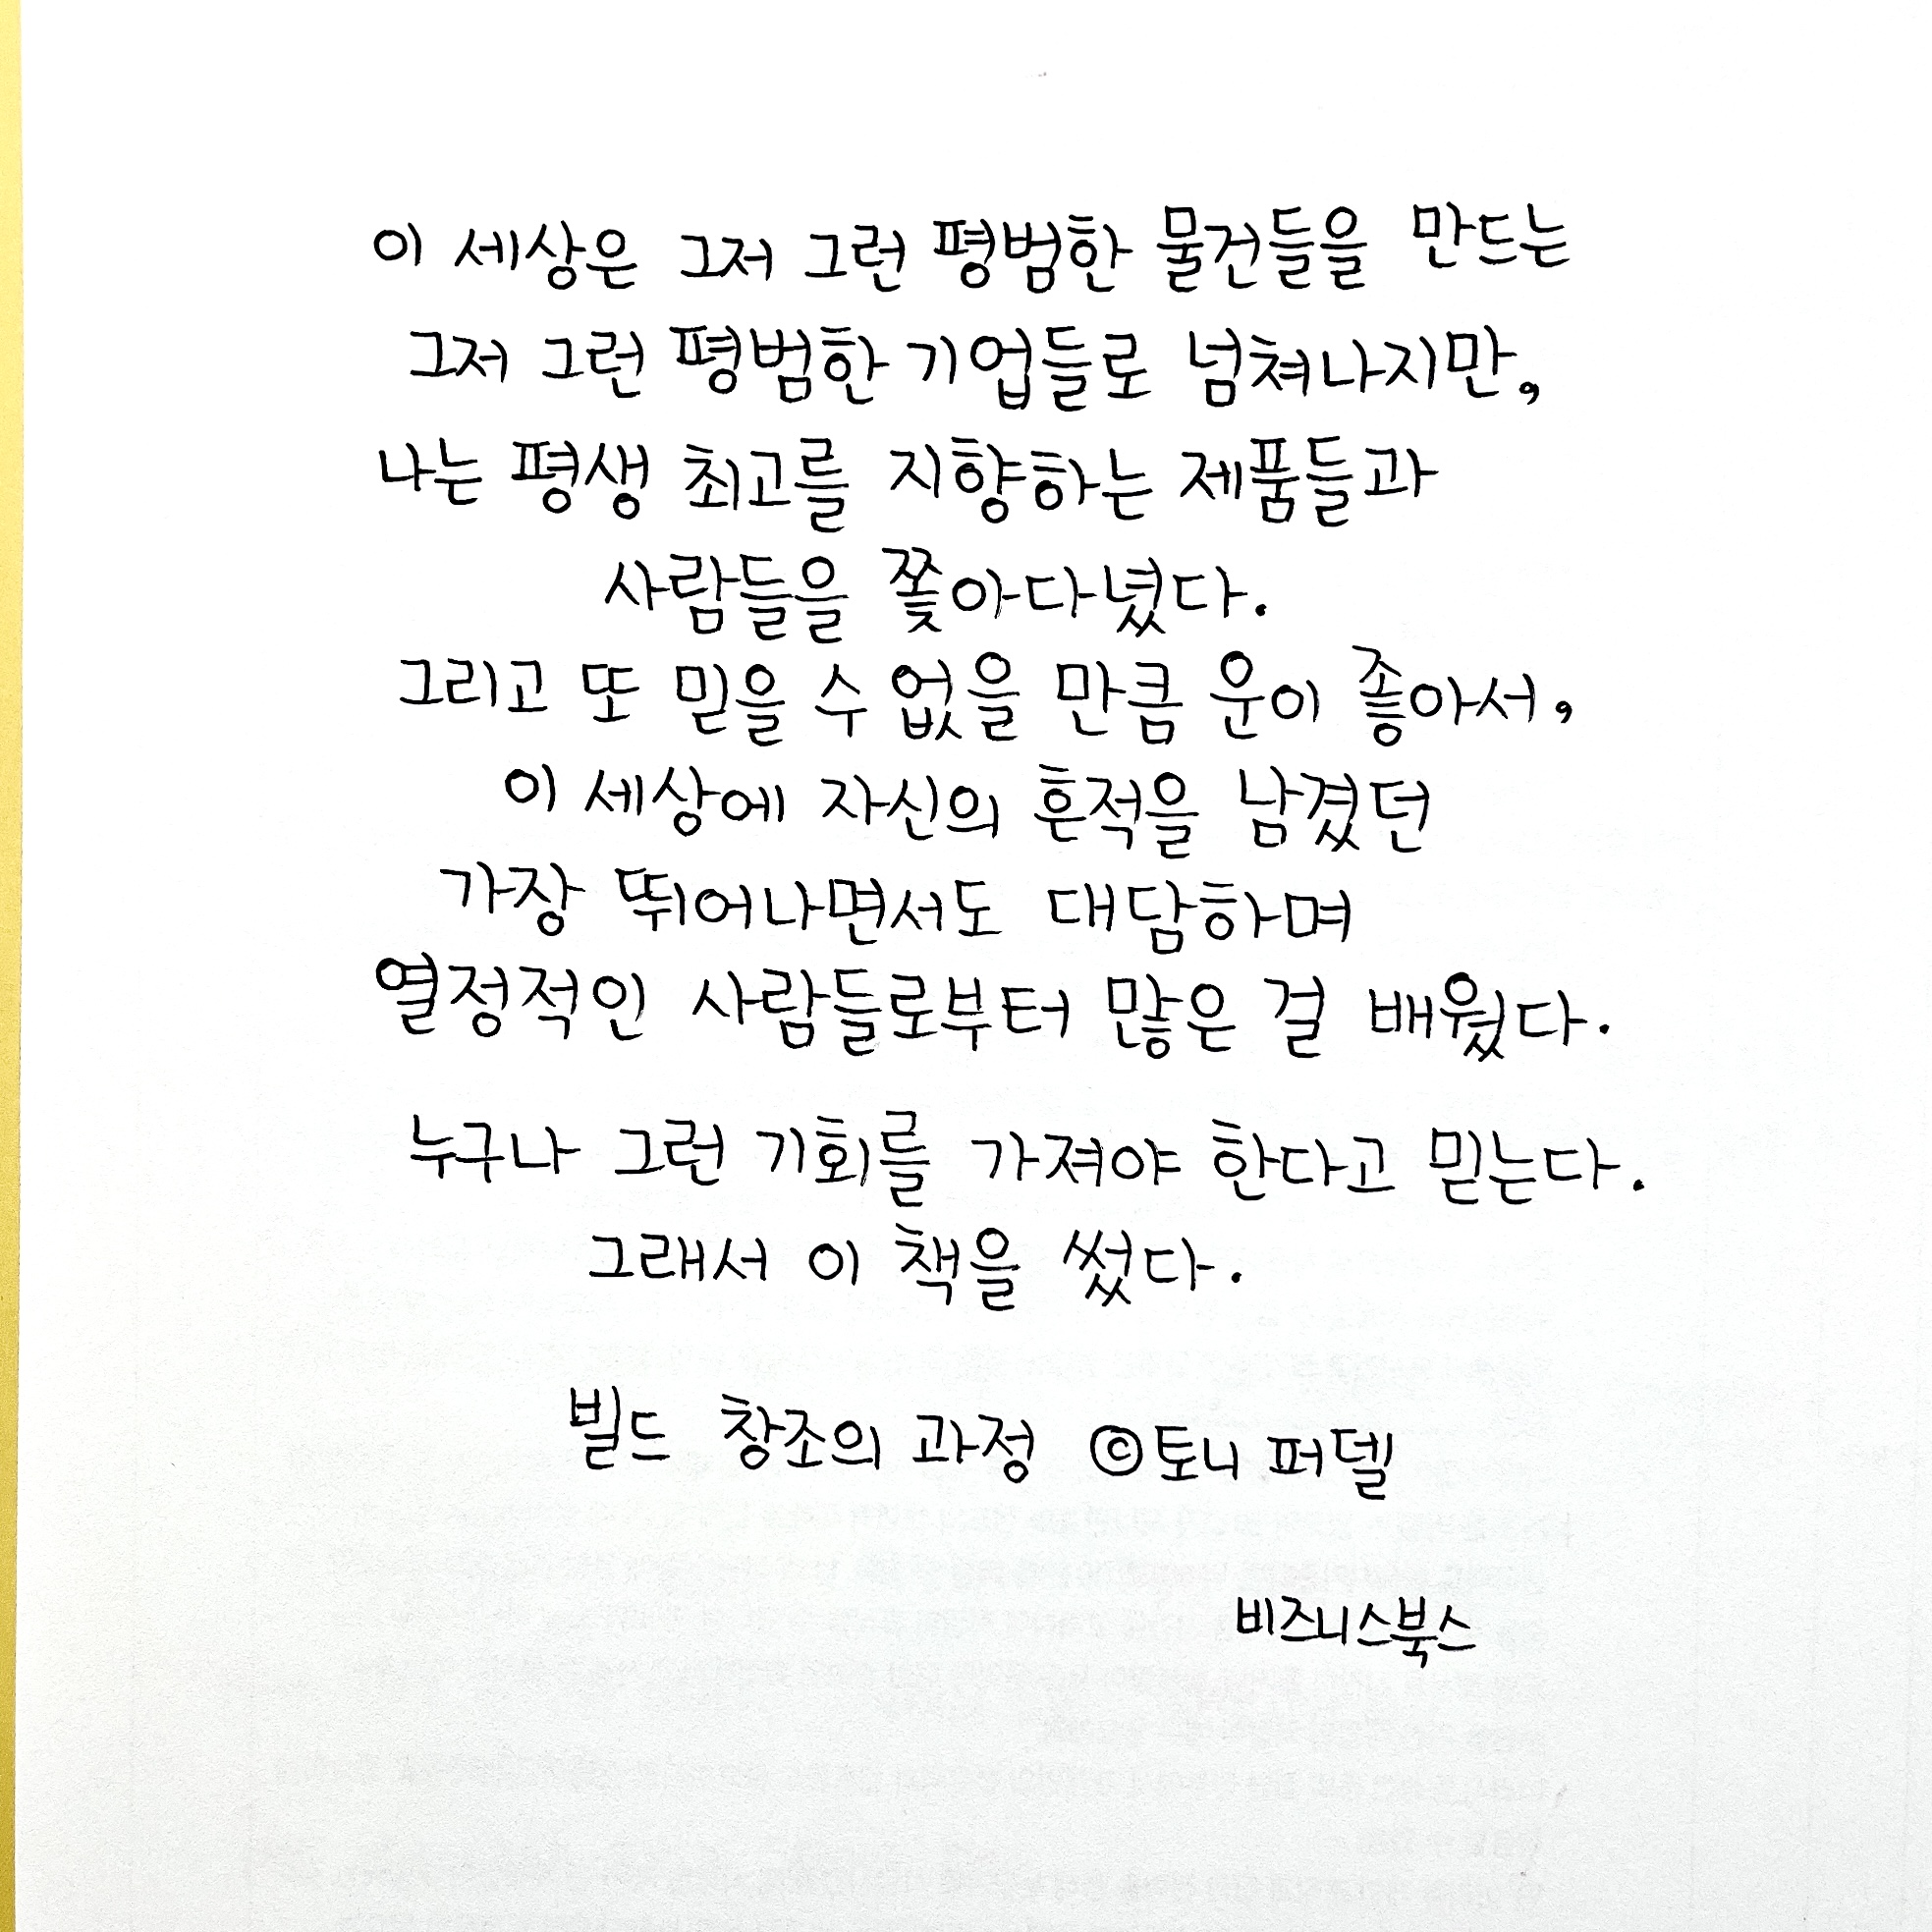 이 세상은 그저 그런 평범한 물건들을 만드는
그저 그런 평범한 기업들로 넘쳐나지만,
나는 평생 최고를 지향하는 제품들과
사람들을 쫓아다녔다.
그리고 또 믿을 수 없을 만큼 운이 좋아서,
이 세상에 자신의 흔적을 남겼던
가장 뛰어나면서도 대담하며
열정적인 사람들로부터 많은 걸 배웠다.
누구나 그런 기회를 가져야 한다고 믿는다.
그래서 이 책을 썼다.
빌드 창조의 과정 ©토니 퍼델
비즈니스북스